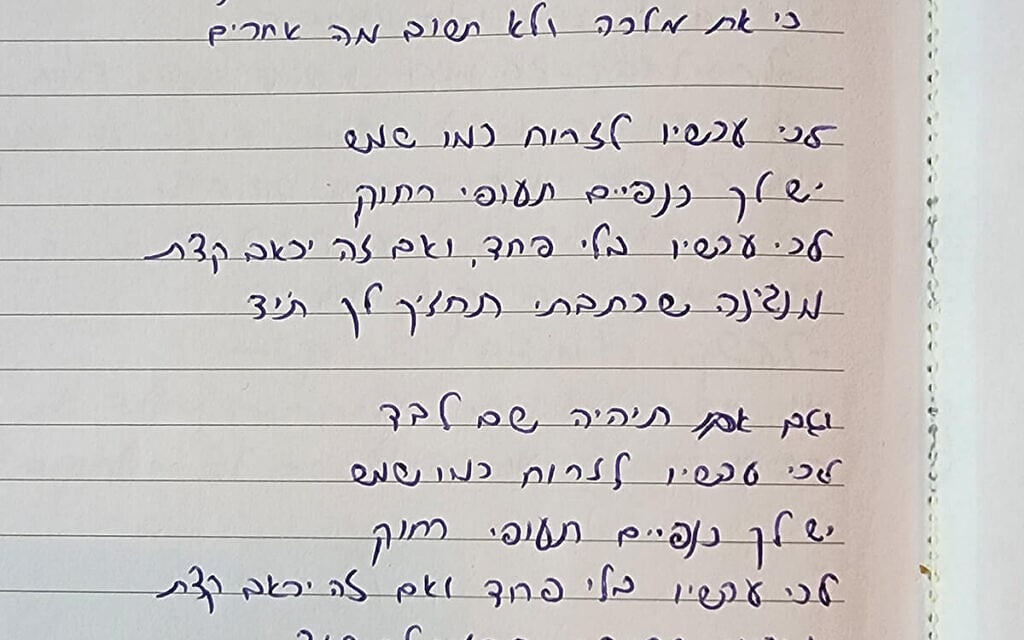 כי את מלכה ולא תשוב מה אחרים
לכי עכשיו לזרוח כמו שמש
יש לך כנפיים תעופי רחוק
לכי עכשיו בלי פחד, ואם זה יכאב קצת
מנגינה שכתבתי תחזיק לך ת'יד
ואם תיהיה שם לבד
לכי עכשיו לזרוח כמו שמש
יש לך כנפיים תעופי רחוק
לכי עכשיו בלי פחד ואם זה יכאב קצת